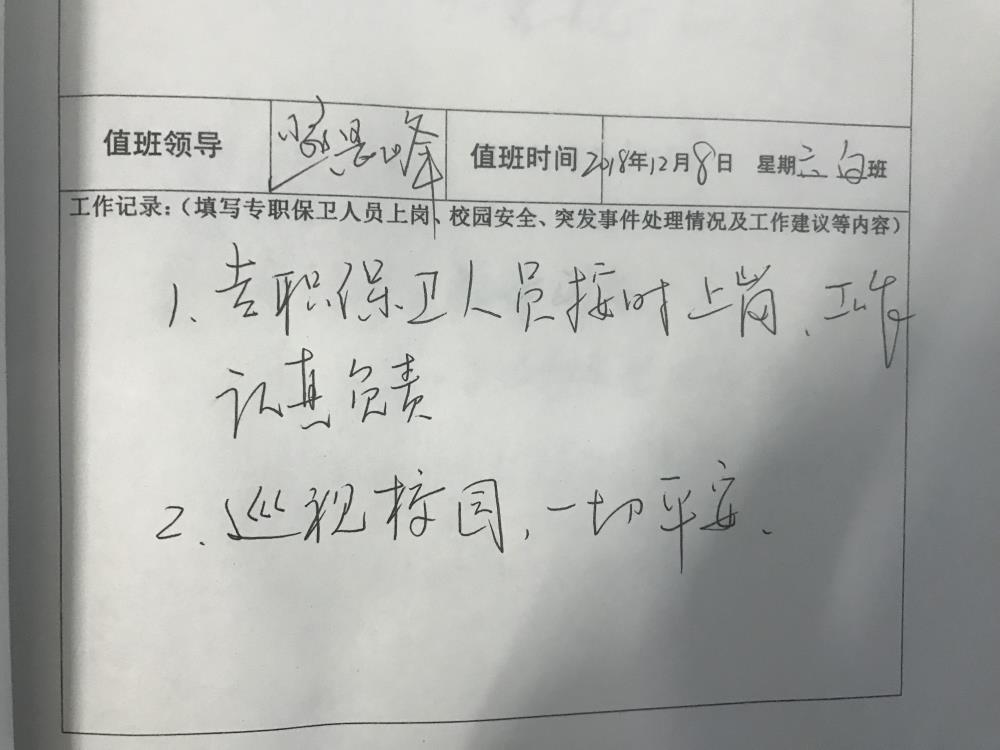 值班领导 值班时间 2018年12月8日 星期六白班
工作记录：（填写专职保卫人员上岗、校园安全、突发事件处理情况及工作建议等内容）
1、专职保卫人员按时上岗、工作
认真负责
2、巡视校园，一切平安.